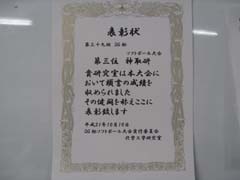 表彰状
第三十九回 OG杯
ソフトボール大会
第三位 神取研
貴研究室は本大会に
おいて頭書の成績を
収められました
その健闘を称えここに
表彰致します
平成21年10月10日
OG杯ソフトボール大会実行委員会
化学工学研究室